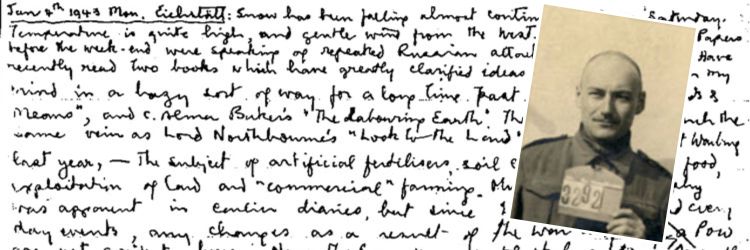 Jan 4th 1943 Mon. Eichstätt: Snow has been falling almost contin Saturday.
Temperature is quite high, and gentle wind from the West. Papers
before the week-end were speaking of repeated Russian attac Have
recently read two books which have greatly clarified ideas in my
mind in a hazy sort of way for a long time past. ds &
Means", and C. Alma Baker's "The Labouring Earth". Th uch the
same vein as Lord Northbourne's "Look to the Land" t Warburg
last year, — The subject of artificial fertilisers, soil e food,
exploitation of land and "commercial" farming. M
was apparent in earlier diaries, but since I d every
day events, any changes as a result of the war a POW
3292